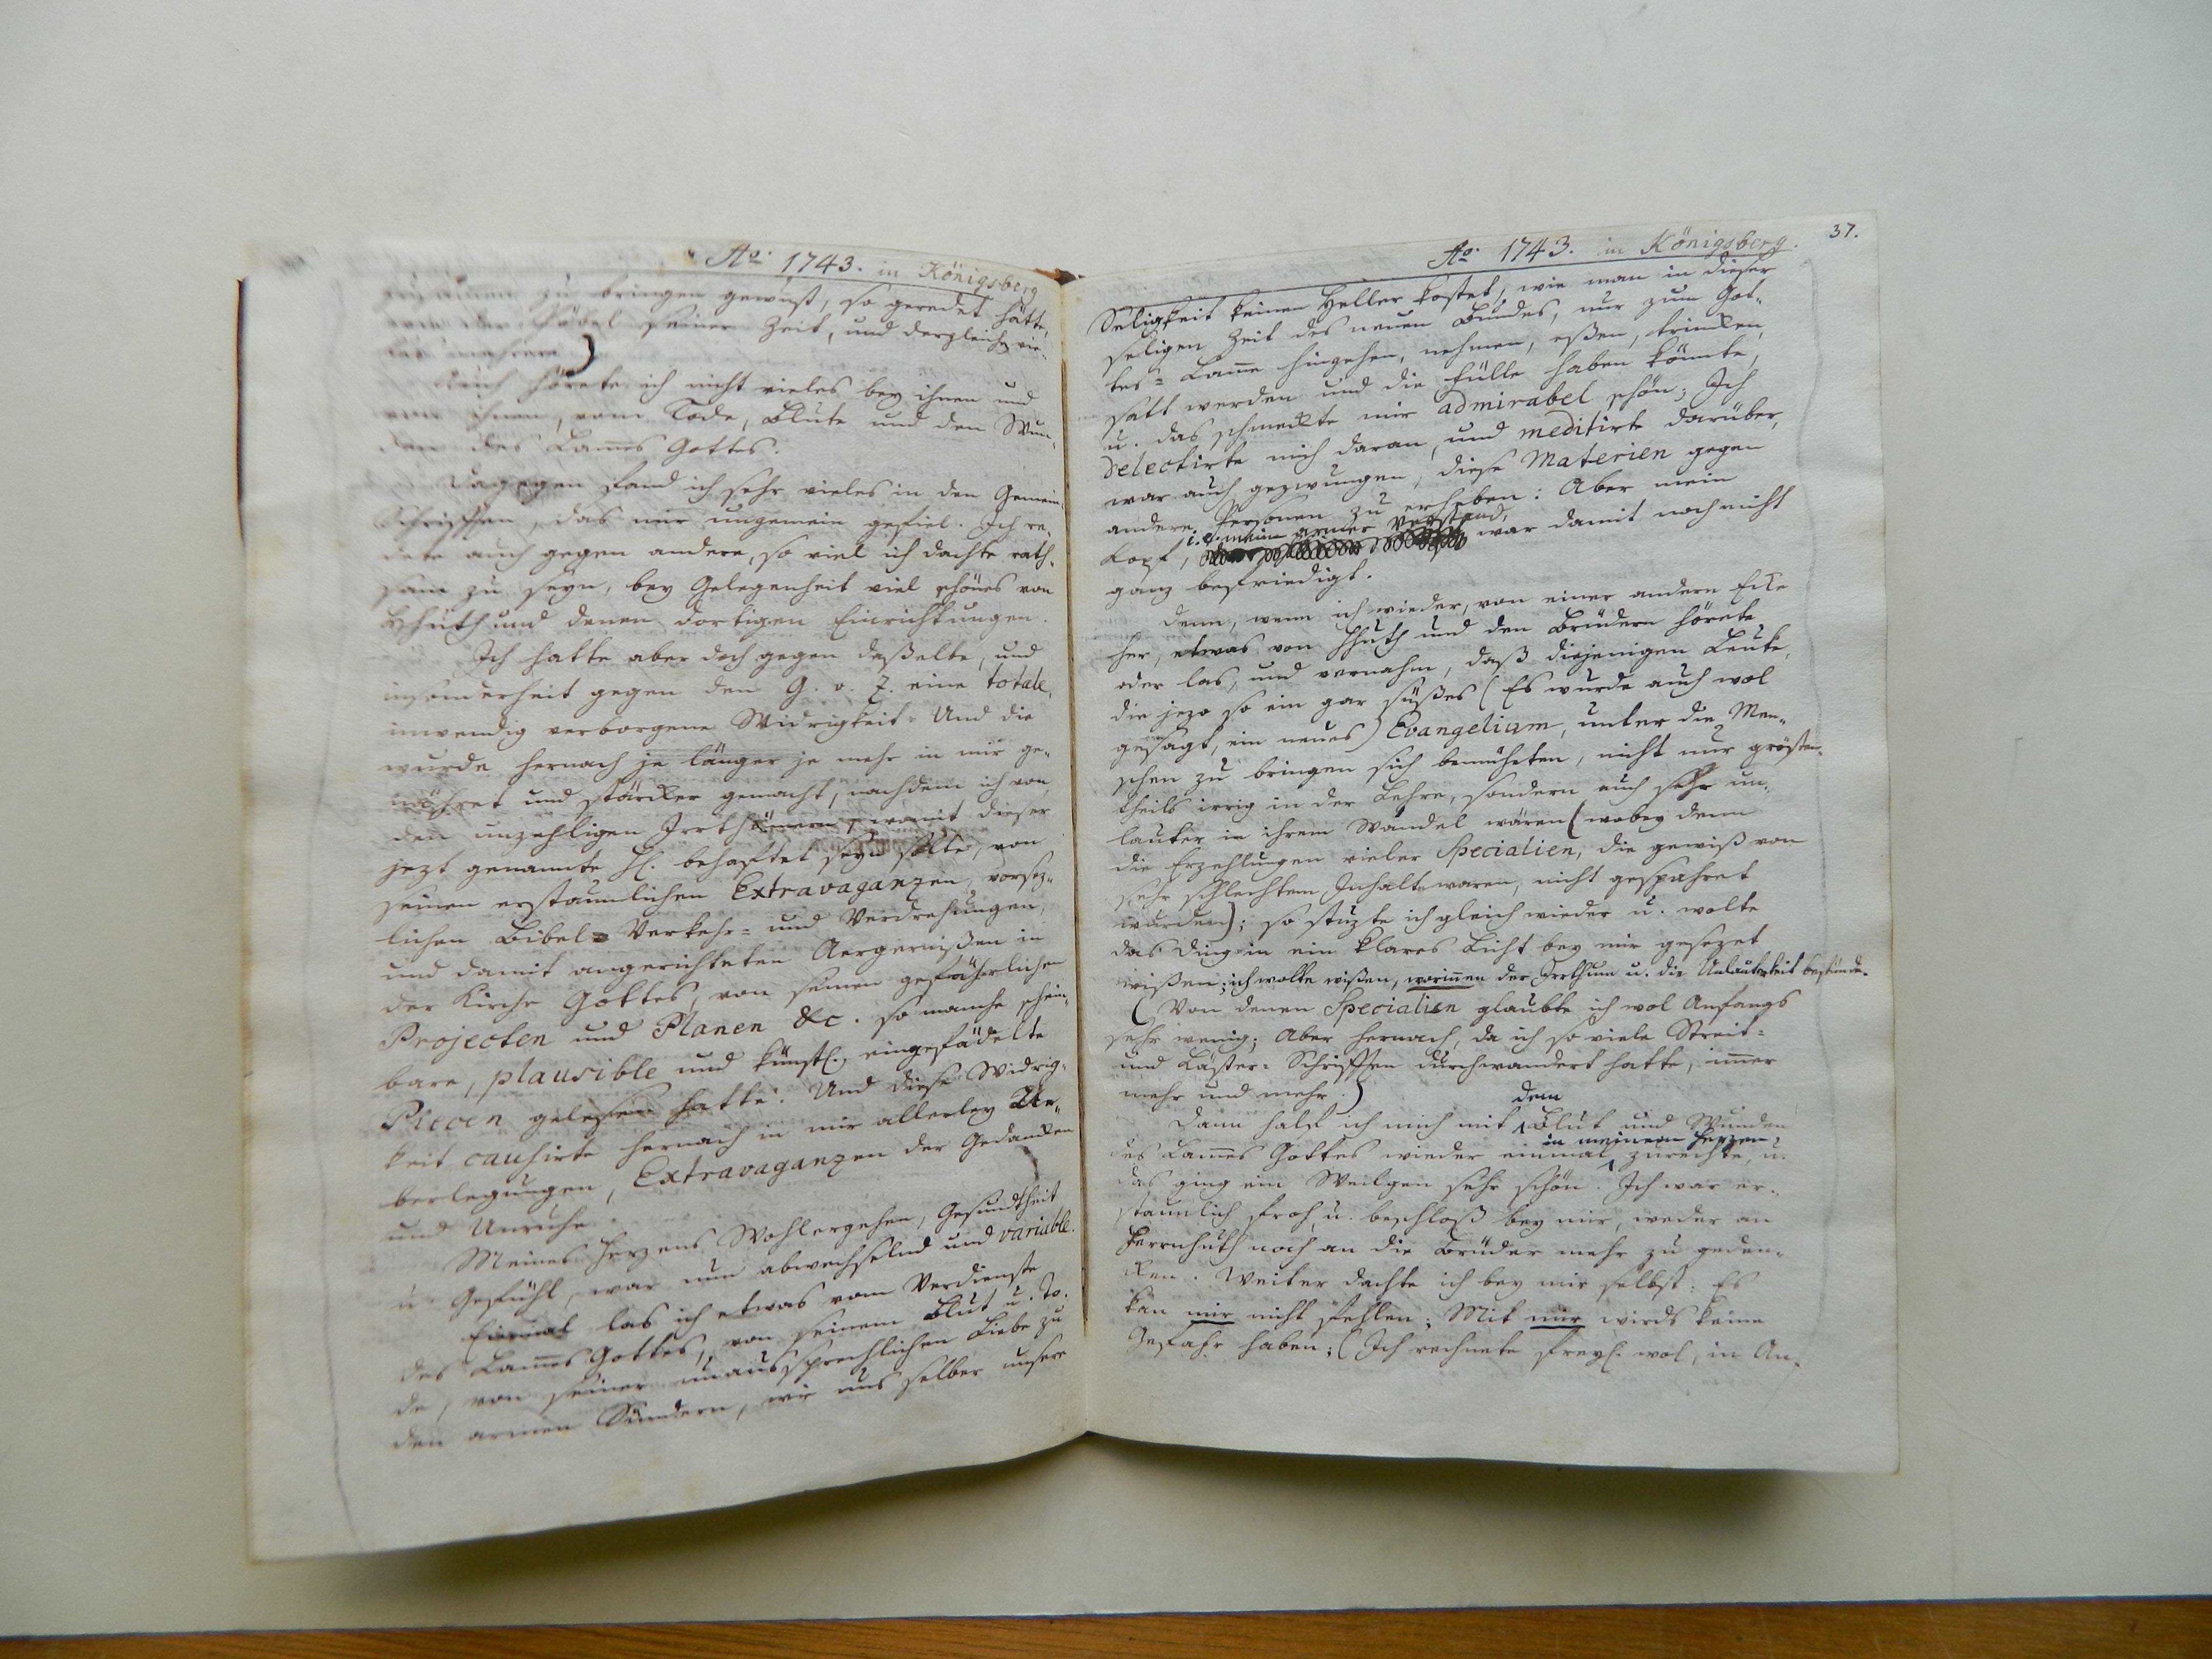 Ao. 1743. in Königsberg
zu bringen gewust, so geredet hätte,
Pöbel seiner Zeit, und dergleichen vie-
les mehrere)
Auch hörete ich nicht vieles bey ihnen und
von ihnen, vom Tode, Blute und den Wun-
den des Lam̄es Gottes.
Dagegen fand ich sehr vieles in den Gemein-
Schrifften, das mir ungemein gefiel. Ich re-
dete auch gegen andere, so viel ich dachte rath-
sam zu seyn, bey Gelegenheit viel schönes von
Hhuth und denen dortigen Einrichtungen.
Ich hatte aber doch gegen deßelbe, und
insonderheit gegen den G. v. Z. eine totale,
inwendig verborgene Widrigkeit. Und die
wurde hernach je länger je mehr in mir ge-
nähret und stärcker gemacht, nachdem ich von
den unzehligen Irrthümern, womit dieser
jezt genannte H. behaftet seyn solte, von
seinen erstaunlichen Extravaganzen, vorsez-
lichen Bibel-Verkehr- und Verdrehungen,
und damit angerichteten Aergernißen in
der Kirche Gottes, von seinen gefährlichen
Projecten und Planen &c. so manche schein-
bare, plausible und künstl. eingefädelte
Piecen gelesen hatte. Und diese Widrig-
keit causirte hernach in mir allerley Ue-
berlegungen, Extravaganzen der Gedancken
und Unruhe.
Meines Herzens Wohlergehen, Gesundtheit
u. Gefühl, war nun abwechselnd und variable.
Einmal las ich etwas vom Verdienste
des Lam̄es Gottes, von seinem Blut u. To-
de, von seiner unaussprechlichen Liebe zu
den armen Sündern, wie uns selber unsere
Ao. 1743. in Königsberg. 37.
Seligkeit keinen Heller kostet, wie man in dieser
seligen Zeit des neuen Bundes, nur zum Got-
tes-Lam̄e hingehen, nehmen, eßen, trincken,
satt werden und die Fülle haben könnte,
u. das schmeckte mir admirabel schön; Ich
delectirte mich daran, und meditirte darüber,
war auch gezwungen, diese Materien gegen
andere Personen zu erheben: Aber mein
i. e. mein armer Verstand,
Kopf, war damit noch nicht
ganz befriedigt.
Denn, wenn ich wieder, von einer andern Ecke
her, etwas von Hhuth und den Brüdern hörete
oder las, und vernahm, daß diejenigen Leute,
die jezo so ein gar süßes (Es wurde auch wol
gesagt, ein neues) Evangelium, unter die Men-
schen zu bringen sich bemüheten, nicht nur grösten-
theils irrig in der Lehre, sondern auch sehr un-
lauter in ihrem Wandel wären (wobey denn
die Erzehlungen vieler Specialien, die gewiß von
sehr schlechtem Inhalte waren, nicht gespahret
wurden); so stuzte ich gleich wieder u. wolte
das Ding in ein klares Licht bey mir gesezet
wißen; ich wolte wißen, worinnen der Irrthum u. die Unlauterkeit bestünde.
(Von denen Specialien glaubte ich wol Anfangs
sehr wenig; Aber hernach, da ich so viele Streit-
und Läster-Schrifften durchwandert hatte, im̄er
mehr und mehr.)
dem
Dann half ich mich mit Blut und Wunden
in meinem Herzen
des Lam̄es Gottes wieder einmal zurechte, u.
das ging ein Weilgen sehr schön. Ich war er-
staunlich froh, u. beschloß bey mir, weder an
Herrnhuth noch an die Brüder mehr zu geden-
cken. Weiter dachte ich bey mir selbst: Es
kan mir nicht fehlen; Mit mir wirds keine
Gefahr haben; (Ich rechnete freyl. wol, in An-